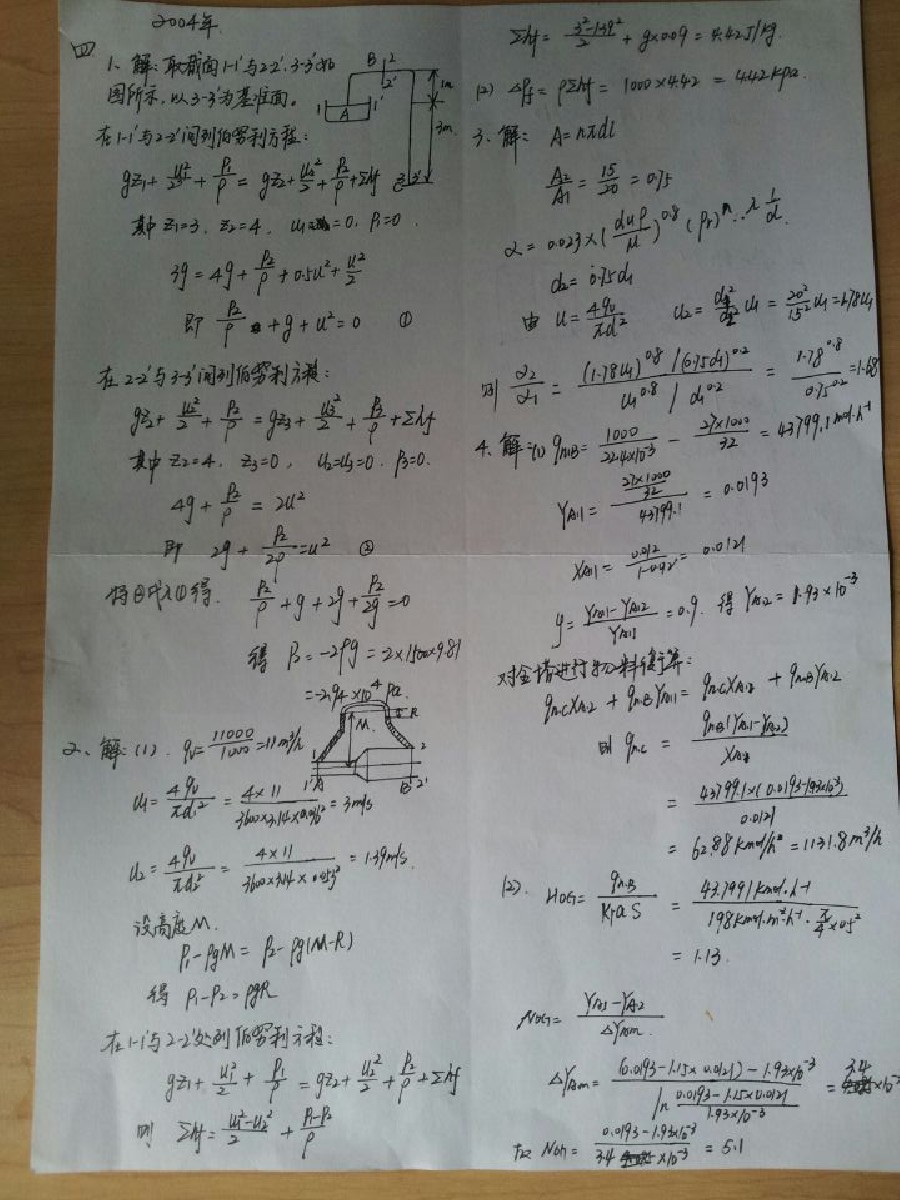 2004年
四
1、解:取截面1-1'与2-2'、3-3'如
图所示,以3-3'为基准面。
B 2
2'
1 1'
A
1m
3m
在1-1'与2-2'间列伯努利方程:
gz₁+u₁²/2+P₁/ρ=gz₂+u₂²/2+P₂/ρ+Σhf
其中 z₁=3, z₂=4, u₁=0, P₁=0.
3g=4g+P₂/ρ+0.5u²+u²/2
即 P₂/ρ+g+u²=0 ①
在2-2'与3-3'间列伯努利方程:
gz₂+u₂²/2+P₂/ρ=gz₃+u₃²/2+P₃/ρ+Σhf
其中 z₂=4, z₃=0, u₂=u₃=0. P₃=0.
4g+P₂/ρ=2u²
即 2g+P₂/2ρ=u² ②
将②代入①得. P₂/ρ+g+2g+P₂/2g=0
得 P₂=-2ρg=-2×1500×9.81
=-2.94×10⁴Pa.
M R
1 2
1' A B 2'
2、解:(1). qv=11000/1000=11m³/h
u₁=4qv/πd₁²=4×11/3600×3.14×0.036²=3m/s
u₂=4qv/πd₂²=4×11/3600×3.14×0.053²=1.39m/s.
设高度M.
P₁-ρgM=P₂-ρg(M-R)
得 P₁-P₂=ρgR
在1-1'与2-2'处列伯努利方程:
gz₁+u₁²/2+P₁/ρ=gz₂+u₂²/2+P₂/ρ+Σhf
则 Σhf=u₁²-u₂²/2+P₁-P₂/ρ
Σhf=3²-1.39²/2+g×0.09=4.42J/kg.
(2) ΔPf=ρΣhf=1000×4.42=4.42kPa
3、解: A=nπdl
A₂/A₁=15/20=0.75
α=0.023×(duρ/μ)^0.8(Pr)^n·λ1/d.
d₂=0.75d₁
由 u=4qv/πd² u₂=d₁²/d₂²u₁=20²/15²u₁=1.78u₁
则 α₂/α₁=(1.78u₁)^0.8/(0.75d₁)^0.2/u₁^0.8/d₁^0.2=1.78^0.8/0.75^0.2=1.68
4、解:(1) qn,B=1000/22.4×10⁻³-27×1000/32=43799.1mol·h⁻¹
YA,1=27×1000/32/43799.1=0.0193
XA,1=0.012/1.092=0.0121
φ=YA,1-YA,2/YA,1=0.9. 得YA,2=1.93×10⁻³
对全塔进行物料衡算:
qn,CXA,2+qn,BYA,1=qn,CXA,2+qn,BYA,2
则 qn,C=qn,B(YA,1-YA,2)/XA,1
=43799.1×(0.0193-1.93×10⁻³)/0.0121
=62.88kmol/h=1131.8m³/h
(2). HOG=qn,B/KYaS=43.7991kmol·h⁻¹/198kmol·m⁻³·h⁻¹·π/4×0.5²
=1.13.
NOG=YA,1-YA,2/ΔYAm.
ΔYAm=(0.0193-1.15×0.0121)-1.93×10⁻³/ln 0.0193-1.15×0.0121/1.93×10⁻³=3.4×10⁻³
故 NOG=0.0193-1.93×10⁻³/3.4×10⁻³=5.1